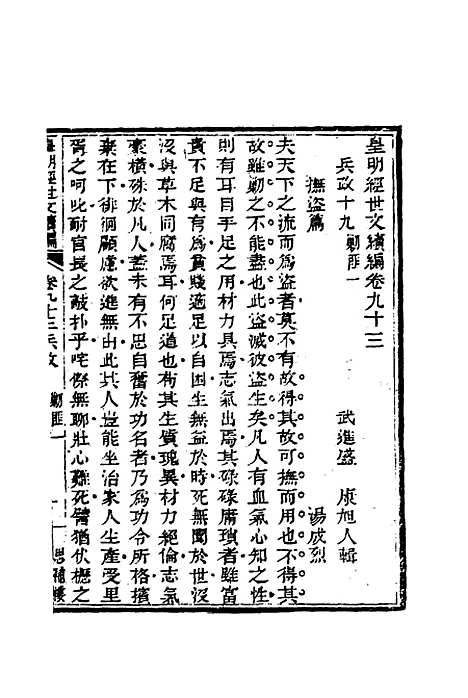 皇朝經世文續編卷九十三
兵政十九剿匪一
武進盛 康旭人輯
撫盜篇
湯成烈
夫天下之流而爲盜者莫不有故得其故可撫而用也不得其
故雖勦之不能盡也此盜滅彼盜生矣凡人有血氣心知之性
則有耳目手足之用材力具焉志氣出焉其碌碌庸瑣者雖富
貴不足與有爲貧賤適足以自困生無益於時死無聞於世沒
沒與草木同腐焉耳何足道也有其生質瑰異材力絕倫志氣
豪橫殊於凡人蓋未有不思自奮於功名者乃爲功令所格擯
棄在下徘徊顧慮欲進無出此其人豈能坐治家人生產受里
胥之呵叱耐官長之敲扑乎咤傺無聊壯心難死譬猶伏櫪之
皇朝經世文續編
卷九十三兵政
剿匪一
一
思補樓